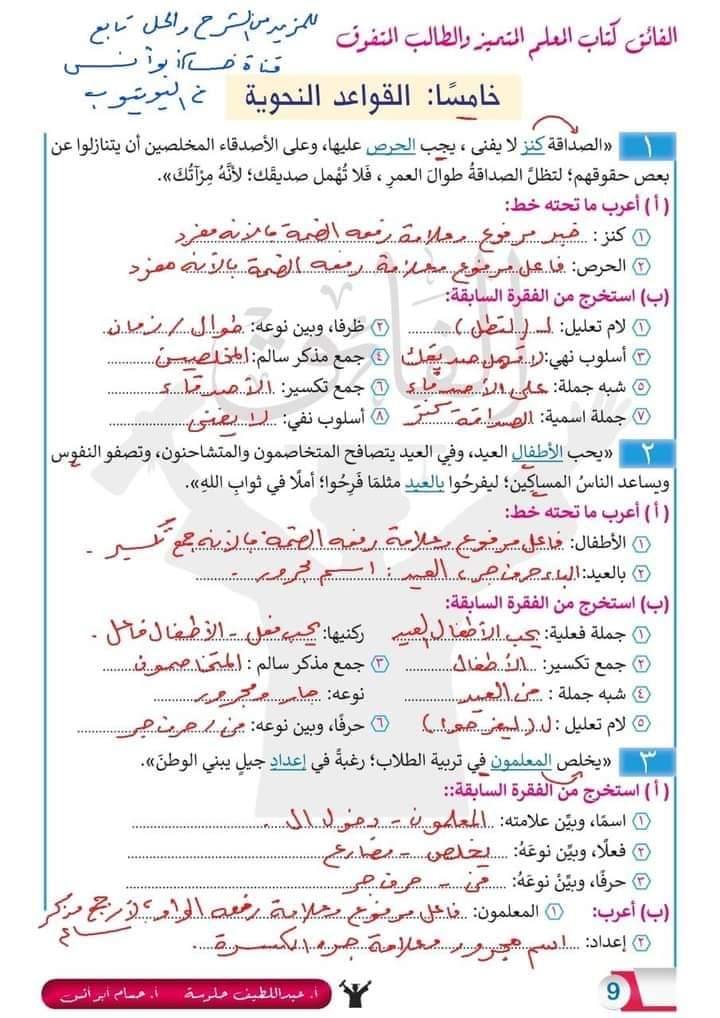 الفائق كتاب المعلم المتميز والطالب المتفوق
للمزيد من الشرح والحل تابع
قناة حسام أبو أنس
في اليوتيوب
خامسًا: القواعد النحوية
١ «الصداقة كنز لا يفنى ، يجب الحرص عليها، وعلى الأصدقاء المخلصين أن يتنازلوا عن
بعض حقوقهم؛ لتظلَّ الصداقةُ طوالَ العمرِ ، فَلا تُهْمل صديقَك؛ لأنَّهُ مِرْآتُكَ».
( أ ) أعرب ما تحته خط:
١ كنز : خبر مرفوع وعلامة رفعه الضمة لأنه مفرد
٢ الحرص: فاعل مرفوع وعلامة رفعه الضمة لأنه مفرد
(ب) استخرج من الفقرة السابقة:
١ لام تعليل: لـ (لتظل) ٢ ظرفا، وبين نوعه: طوال / زمان
٣ أسلوب نهي: لا تهمل صديقك ٤ جمع مذكر سالم: المخلصين
٥ شبه جملة: على الأصدقاء ٦ جمع تكسير: الأصدقاء
٧ جملة اسمية: الصداقة كنز ٨ أسلوب نفي: لا يفنى
٢ «يحب الأطفال العيد، وفي العيد يتصافح المتخاصمون والمتشاحنون، وتصفو النفوس
ويساعد الناسُ المساكين؛ ليفرحُوا بالعيد مثلمَا فَرِحُوا؛ أملًا في ثوابِ اللهِ».
( أ ) أعرب ما تحته خط:
١ الأطفال: فاعل مرفوع وعلامة رفعه الضمة لأنه جمع تكسير -
٢ بالعيد: الباء حرف جر، العيد : اسم مجرور -
(ب) استخرج من الفقرة السابقة:
١ جملة فعلية: يحب الأطفال العيد ركنيها: يحب فعل - الأطفال فاعل .
٢ جمع تكسير: الأطفال ٣ جمع مذكر سالم : المتخاصمون
٤ شبه جملة : العيد نوعه: جار ومجرور
٥ لام تعليل : ل (ليفرحوا) ٦ حرفا، وبين نوعه: في / حرف جر
٣ «يخلص المعلمون في تربية الطلاب؛ رغبةً في إعداد جيلٍ يبني الوطنَ».
( أ ) استخرج من الفقرة السابقة::
١ اسمًا، وبيِّن علامته: المعلمون - دخول ال .
٢ فعلًا، وبيِّن نوعَهُ: يخلص - مضارع
٣ حرفًا، وبيِّنْ نوعَهُ: في - حرف جر
(ب) أعرب: ١ المعلمون: فاعل مرفوع وعلامة رفعه الواو لأنه جمع مذكر سالم
٢ إعداد: اسم مجرور وعلامة جره الكسرة .
9
أ. عبداللطيف حلوسة أ. حسام أبو أنس
الفائق